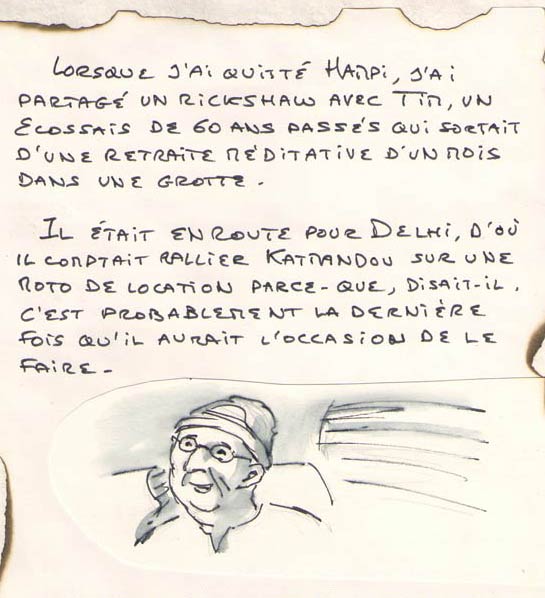 LORSQUE J'AI QUITTÉ HAMPI, J'AI
PARTAGÉ UN RICKSHAW AVEC TIM, UN
ECOSSAIS DE 60 ANS PASSÉS QUI SORTAIT
D'UNE RETRAITE MÉDITATIVE D'UN MOIS
DANS UNE GROTTE.
IL ÉTAIT EN ROUTE POUR DELHI, D'OÙ
IL COMPTAIT RALLIER KATMANDOU SUR UNE
MOTO DE LOCATION PARCE-QUE, DISAIT-IL.
C'EST PROBABLEMENT LA DERNIÈRE
FOIS QU'IL AURAIT L'OCCASION DE LE
FAIRE.